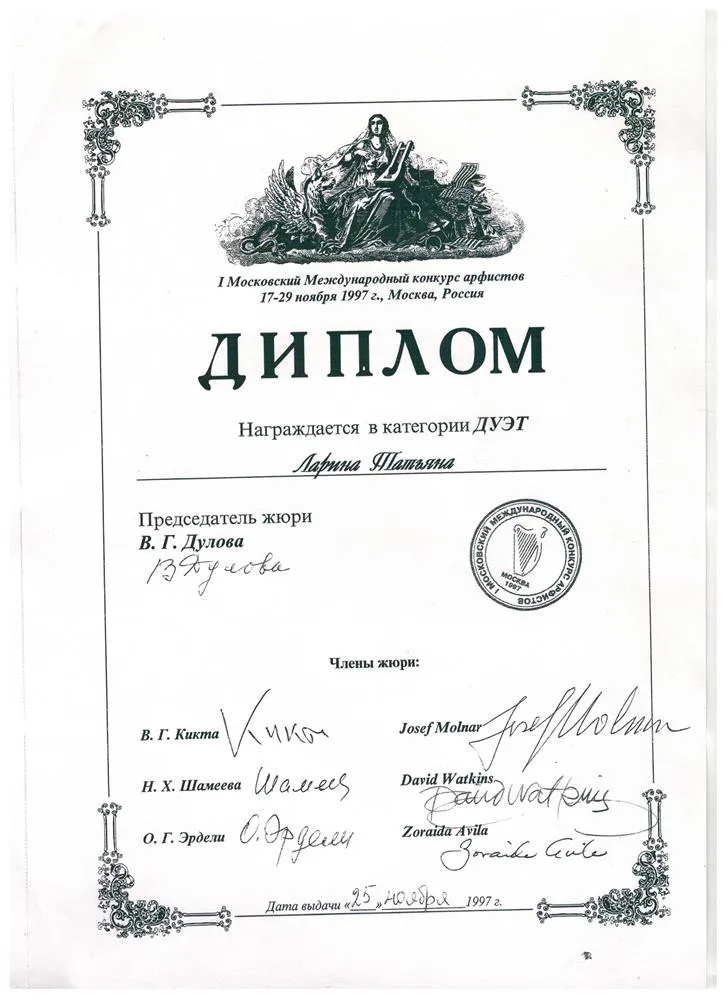 I Московский Международный конкурс арфистов
17-29 ноября 1997 г., Москва, Россия
ДИПЛОМ
Награждается в категории ДУЭТ
Ларина Татьяна
Председатель жюри
В. Г. Дулова
ВДулова
I МОСКОВСКИЙ МЕЖДУНАРОДНЫЙ КОНКУРС АРФИСТОВ
МОСКВА
1997
Члены жюри:
В. Г. Кикта Кикта Josef Molnar Josef Molnar
Н. Х. Шамеева Шамеев David Watkins David Watkins
О. Г. Эрдели О. Эрдели Zoraida Avila Zoraida Avila
Дата выдачи «25» ноября 1997 г.